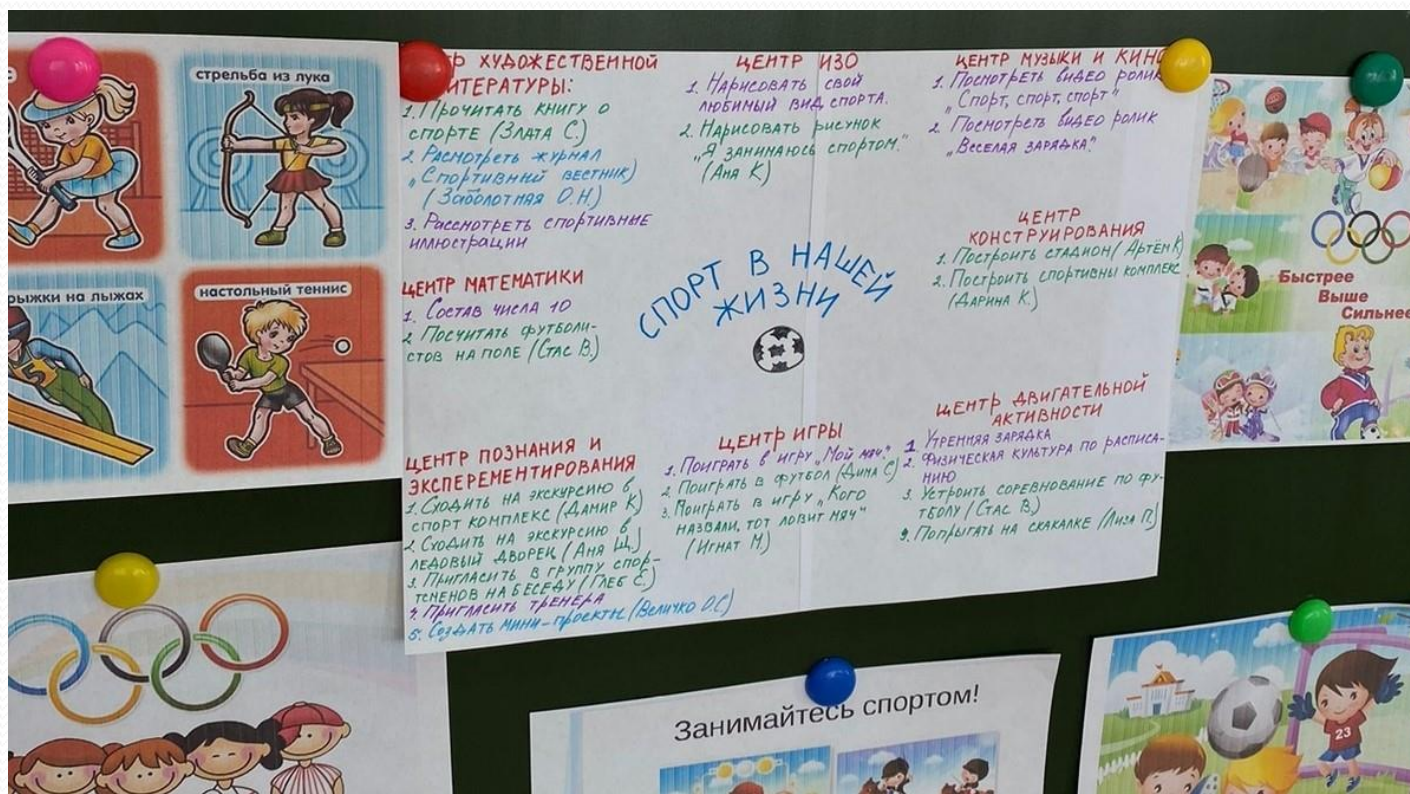 стрельба из лука
рыжки на лыжах
настольный теннис
р ХУДОЖЕСТВЕННОЙ
ИТЕРАТУРЫ:
1. Прочитать книгу о
спорте (Злата С.)
2. Расмотреть журнал
„Спортивный вестник)
(Заболотная О.Н.)
3. Рассмотреть спортивные
иллюстрации
ЦЕНТР МАТЕМАТИКИ
1. Состав числа 10
2 Посчитать футболи-
стов на поле (Стас В.)
ЦЕНТР ПОЗНАНИЯ И
ЭКСПЕРЕМЕНТИРОВАНИЯ
1. Сходить на экскурсию в
спорт комплекс (Дамир К)
2. Сходить на экскурсию в
ледовый дворец (Аня Щ.)
3. Пригласить в группу спор-
тсменов на беседу (Глеб Е.)
4. Пригласить тренера
5. Создать мини-проекты (Величко О.С)
ЦЕНТР ИЗО
1. Нарисовать свой
любимый вид спорта.
2. Нарисовать рисунок
„Я занимаюсь спортом."
(Аня К)
СПОРТ В НАШЕЙ
ЖИЗНИ
ЦЕНТР ИГРЫ
1. Поиграть в игру „Мой мяч."
2. Поиграть в футбол (Дима С)
3. Поиграть в игру „Кого
назвали, тот ловит мяч"
(Игнат М.)
ЦЕНТР МУЗЫКИ И КИНО
1. Посмотреть видео ролик
„Спорт, спорт, спорт"
2. Посмотреть видео ролик
„Веселая зарядка."
ЦЕНТР
КОНСТРУИРОВАНИЯ
1. Построить стадион (Артём К)
2. Построить спортивны комплекс
(Дарина К.)
ЦЕНТР ДВИГАТЕЛЬНОЙ
АКТИВНОСТИ
1. Утренняя зарядка
2. Физическая культура по расписа-
нию
3. Устроить соревнование по фу-
тболу (Стас В.)
9. Попрыгать на скакалке (Лиза П.)
Быстрее
Выше
Сильнее
5
Занимайтесь спортом!
23